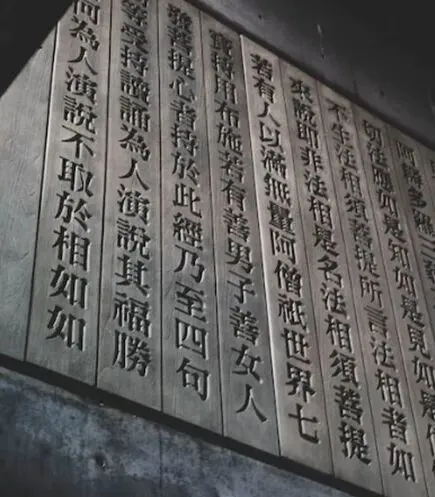 阿耨多羅三藐
切法應如是知如是見如是信
不生法相須菩提所言法相者如
來說即非法相是名法相須菩提
若有人以滿量阿僧祇世界七
寶持用布施若有善男子善女人
發菩提心者持於此經乃至四句
等受持讀誦為人演說其福勝
何為人演說不取於相如如